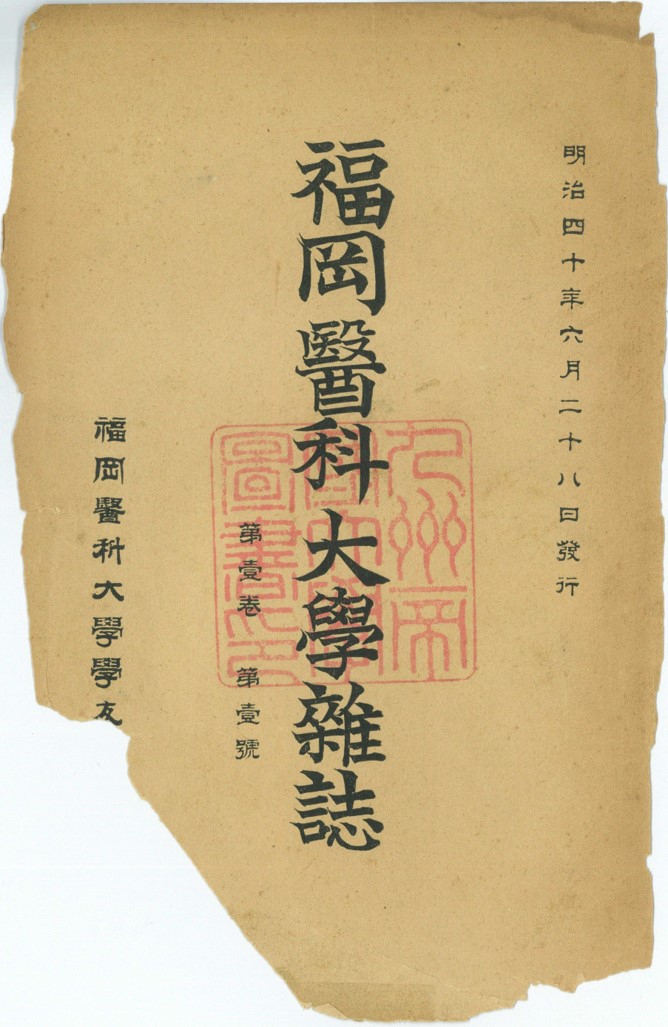 明治四十年六月二十八日發行
福岡醫科大學雜誌
第壹卷 第壹號
福岡醫科大學學友
九州帝
國大學
圖書之印